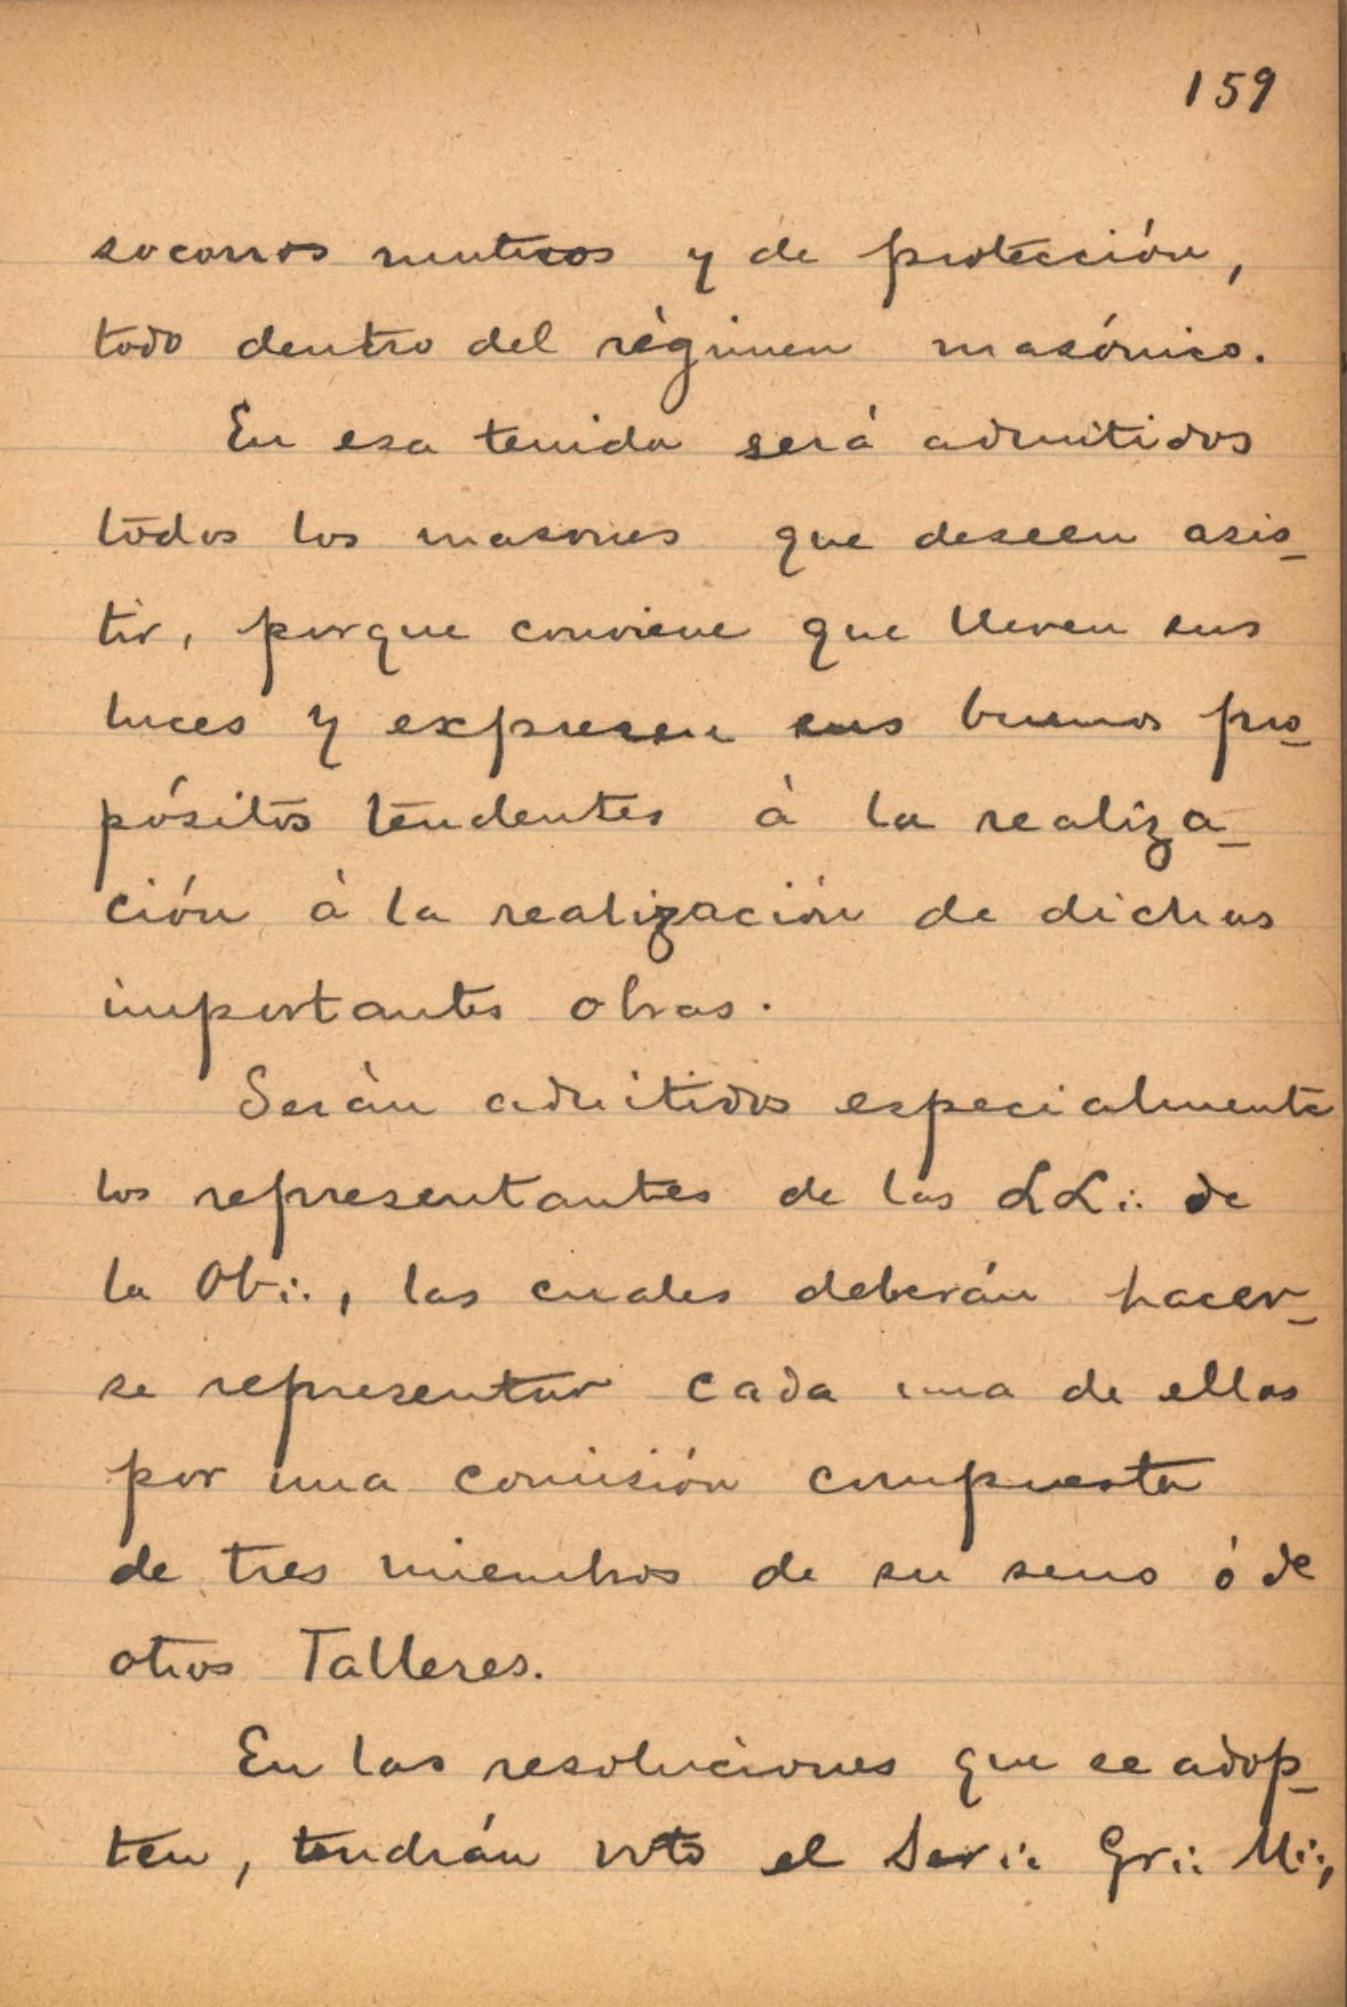 159
socorros mutuos y de protección,
todo dentro del régimen masónico.
En esa tenida será admitidos
todos los masones que deseen asis-
tir, porque conviene que lleven sus
luces y expresen sus buenos pro-
pósitos tendentes à la realiza-
ción à la realización de dichas
importantes obras.
Seràn admitidos especialmente
los representantes de las LL∴ de
la Ob∴, las cuales deberán hacer-
se representar cada una de ellas
por una comisión compuesta
de tres miembros de su seno ó de
otros Talleres.
En las resoluciones que se adop-
ten, tendrán voto el Ser∴ Gr∴ M∴,